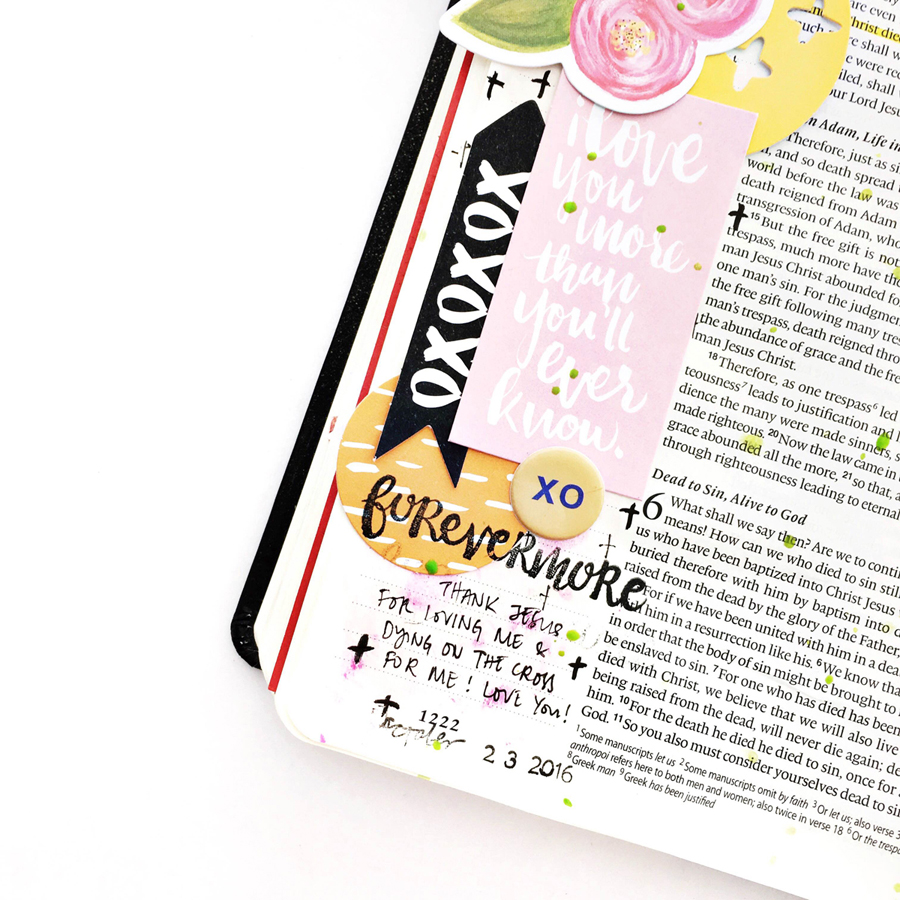 i love
you
more
than
you'll
ever
know.
oxoxox
XO
forevermore
THANK JESUS
FOR LOVING ME &
DYING ON THE CROSS
FOR ME! LOVE YOU!
1222
2 3 2016
are even
Christ died
such re shall w
e were rec
iled, shall
our Lord Jesu
n Adam, Life in
Therefore, just as si
and so death spread
world before the law was
death reigned from Adam
transgression of Adam, who
15 But the free gift is not
trespass, much more have the
man Jesus Christ abounded fo
one man's sin. For the judgmen
the free gift following many tres
man's trespass, death reigned thro
the abundance of grace and the fre
man Jesus Christ.
18 Therefore, as one trespass6 led
teousness7 leads to justification and l
dience the many were made sinners, s
made righteous. 20 Now the law came in
grace abounded all the more, 21 so that, a
through righteousness leading to eternal
Dead to Sin, Alive to God
6 What shall we say then? Are we to conti
means! How can we who died to sin still
us who have been baptized into Christ Jesus
buried therefore with him by baptism into d
raised from the dead by the glory of the Father,
For if we have been united with him in a dea
him in a resurrection like his. 6 We know tha
in order that the body of sin might be brought to
be enslaved to sin. 7 For one who has died has been
died with Christ, we believe that we will also live
being raised from the dead, will never die again; de
him. 10 For the death he died he died to sin, once for a
God. 11 So you also must consider yourselves dead to sin
1 Some manuscripts let us 2 Some manuscripts omit by faith 3 Or let us; also verse 3
anthropoi refers here to both men and women; also twice in verse 18 6 Or the trespa
8 Greek man 9 Greek has been justified